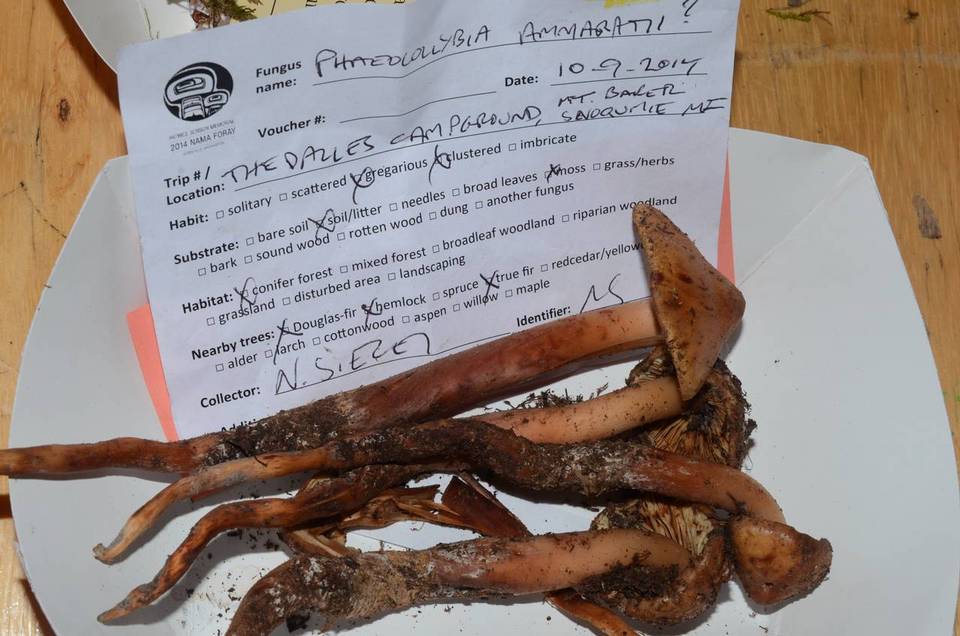 Fungus name: PHAEOCOLLYBIA AMMIRATII?
2014 NAMA FORAY
Voucher #: Date: 10-9-2014
Trip # / Location: THE DALLES CAMPGROUND, MT. BAKER SNOQUMIE NF
Habit: □ solitary □ scattered ☒ gregarious ☒ clustered □ imbricate
Substrate: □ bare soil ☒ soil/litter □ needles □ broad leaves ☒ moss □ grass/herbs
□ bark □ sound wood □ rotten wood □ dung □ another fungus
Habitat: ☒ conifer forest □ mixed forest □ broadleaf woodland □ riparian woodland
□ grassland □ disturbed area □ landscaping
Nearby trees: ☒ Douglas-fir ☒ hemlock □ spruce ☒ true fir □ redcedar/yellow
□ alder □ larch □ cottonwood □ aspen □ willow □ maple
Collector: N. SIEGEL Identifier: NS